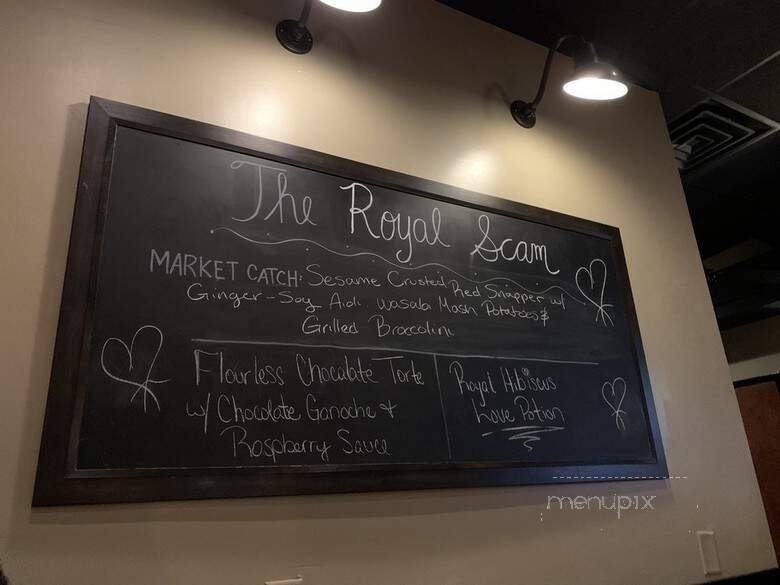 The Royal Scam
MARKET CATCH: Sesame Crusted Red Snapper w/
Ginger-Soy Aioli Wasabi Mash Potatoes &
Grilled Broccolini
Flourless Chocalate Torte
w/ Chocolate Ganache &
Raspberry Sauce
Royal Hibiscus
Love Potion
menupix